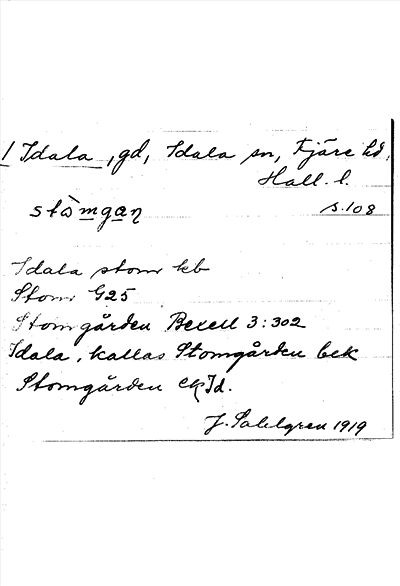 1 Idala, gd, Idala sn, Fjäre hd,
Hall. l.
stòmgan
s. 108
Idala stom kb
Stom G25
Stomgården Bexell 3:302
Idala, kallas Stomgården bek
Stomgården Id.
J. Sahlgren 1919